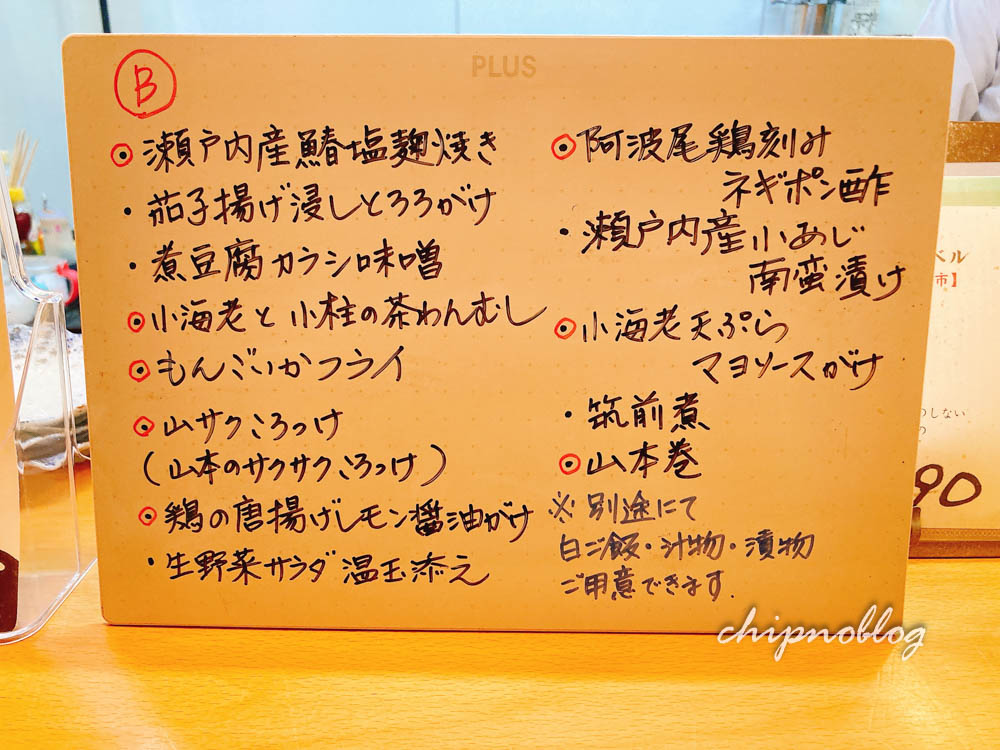 PLUS
B
瀬戸内産鰆塩麹焼き
・茄子揚げ浸しとろろがけ
・煮豆腐カラシ味噌
小海老と小柱の茶わんむし
もんごいかフライ
山サクころっけ
(山本のサクサクころっけ)
鶏の唐揚げレモン醤油がけ
・生野菜サラダ温玉添え
阿波尾鶏刻み
ネギポン酢
・瀬戸内産小あじ
南蛮漬け
小海老天ぷら
マヨソースがけ
・筑前煮
山本巻
※別途にて
白ご飯・汁物・漬物
ご用意できます.
ベル
市】
りしない
の
90
chipnoblog